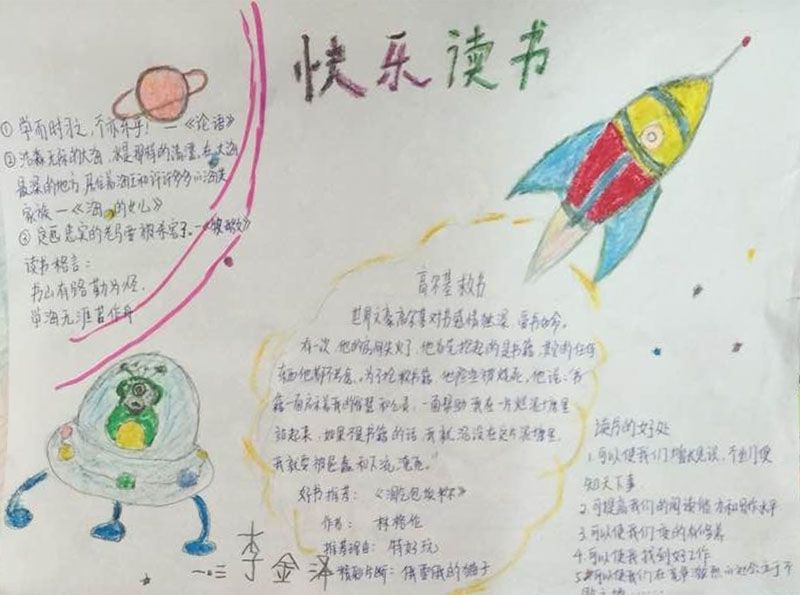 快乐读书
①学而时习之，不亦乐乎！—《论语》
的大海，是那样的
的地方，居住着海王和许许多多的海
家族—《海 的女儿》
③这匹忠实的老马
读书格言：
书山有路勤为径，
学海无涯苦作舟
高尔基救书
世界文豪高尔基对书感情独深，爱书如命。
有一次，他的房间失火了，他首先抱起的是书籍，其他的任何
东西他都不考虑。为了抢救书籍，他险些被烧死。他说：“书
籍一面启示着我的智慧和心灵，一面帮助我在一片烂泥塘里
站起来，如果不是书籍的话，我就沉没在这片泥塘里，
我就要被愚蠢和下流淹死。”
好书推荐：《淘气包埃米尔》
作者：林格伦
推荐理由：特好玩
精彩片断：
读书的好处
1.可以使我们增长见识，不出门便
知天下事。
2.可提高我们的阅读能力和写作水平
3.可以使我们变的有修养
4.可以使我找到好工作
5.可以使我们在竞争激烈的社会立于不
败之地……
一·二 李金泽